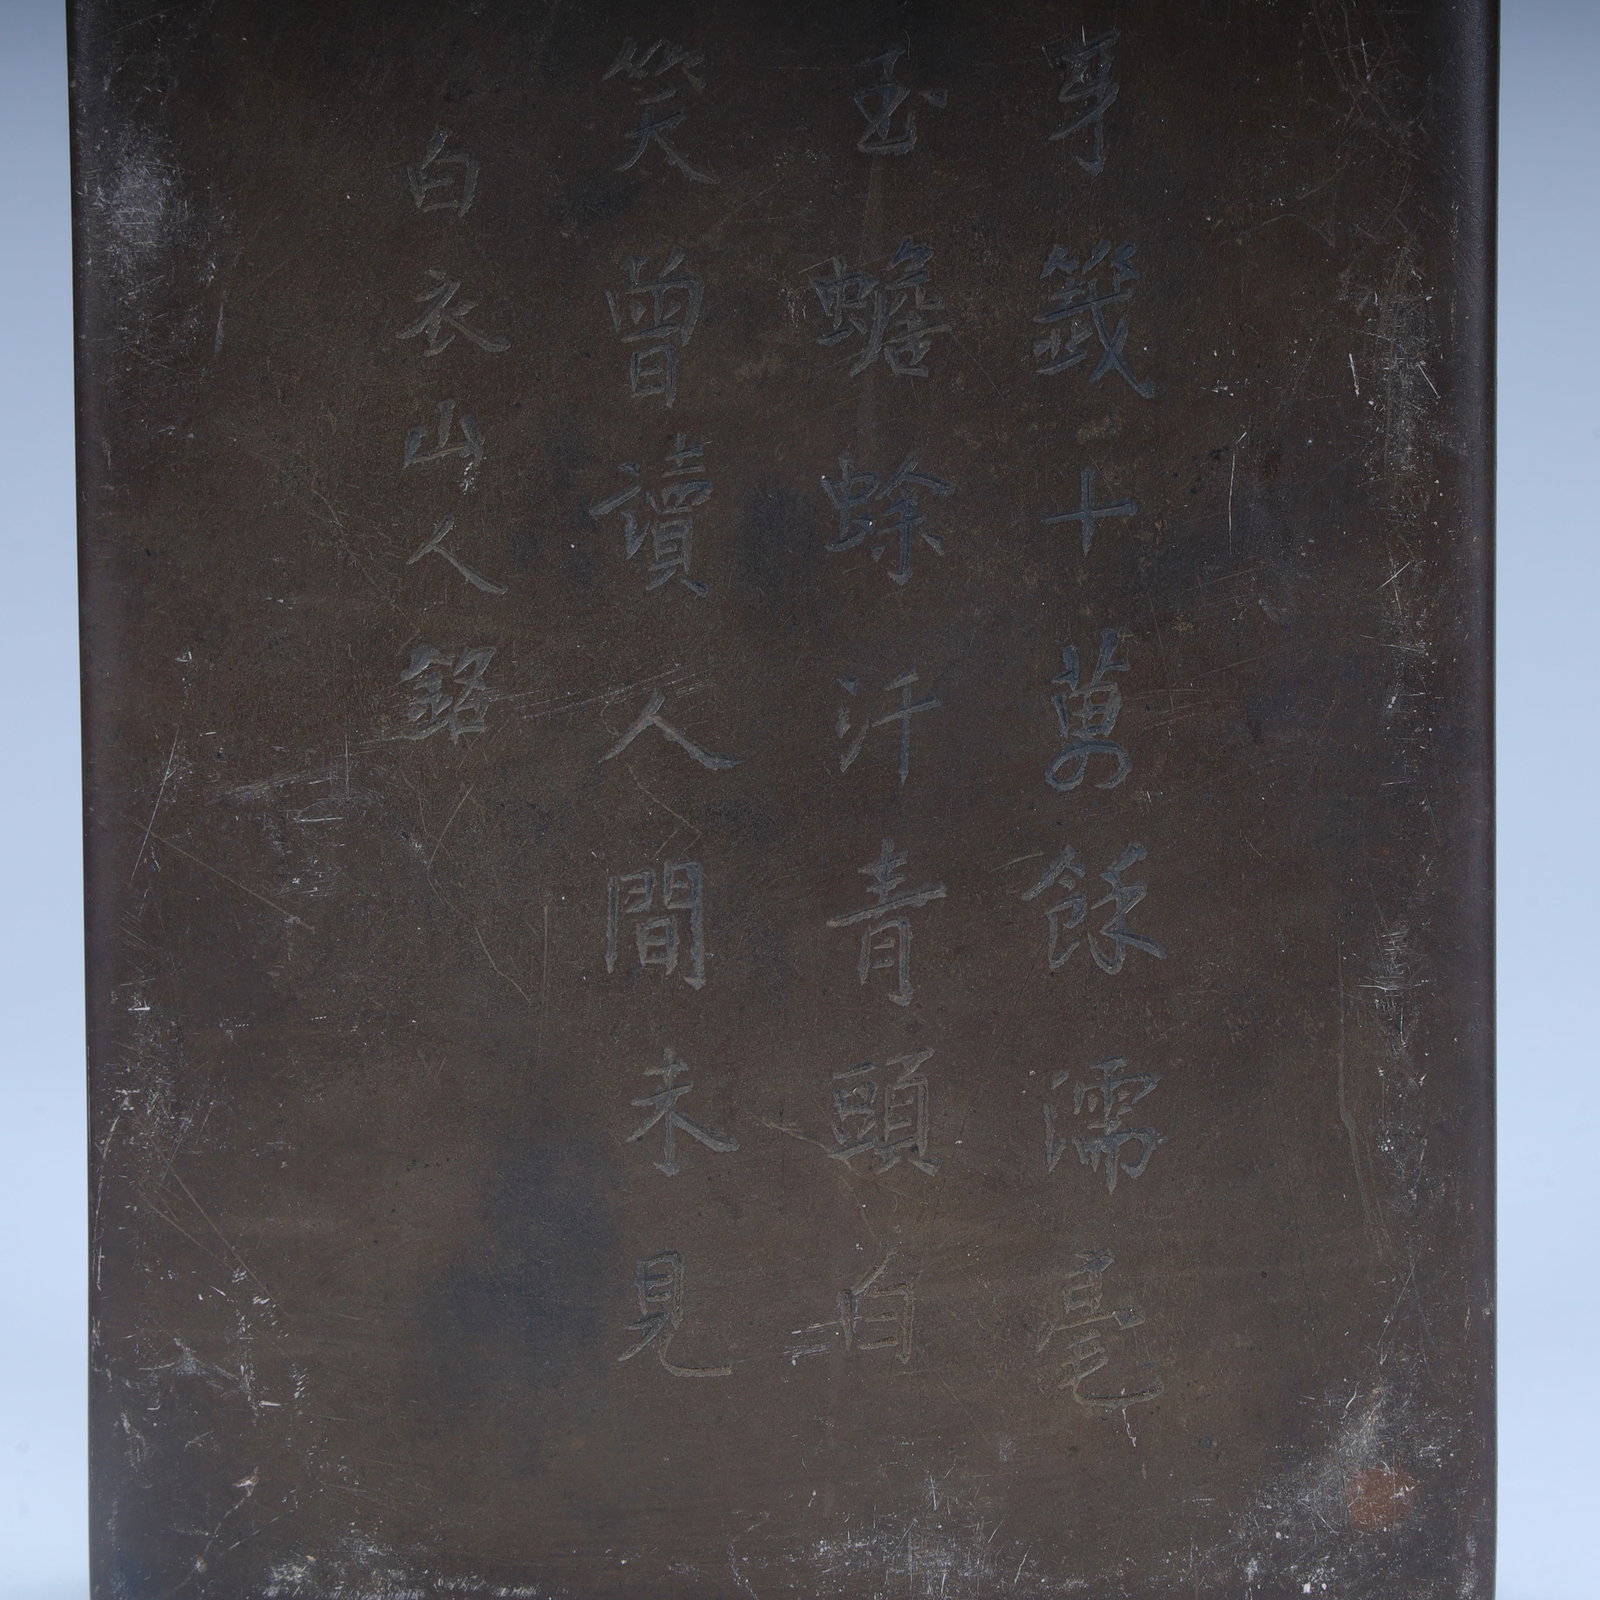 牙籤十萬餘濡毫
玉蟾蜍汗青頭白
笑曾讀人間未見
白衣山人銘